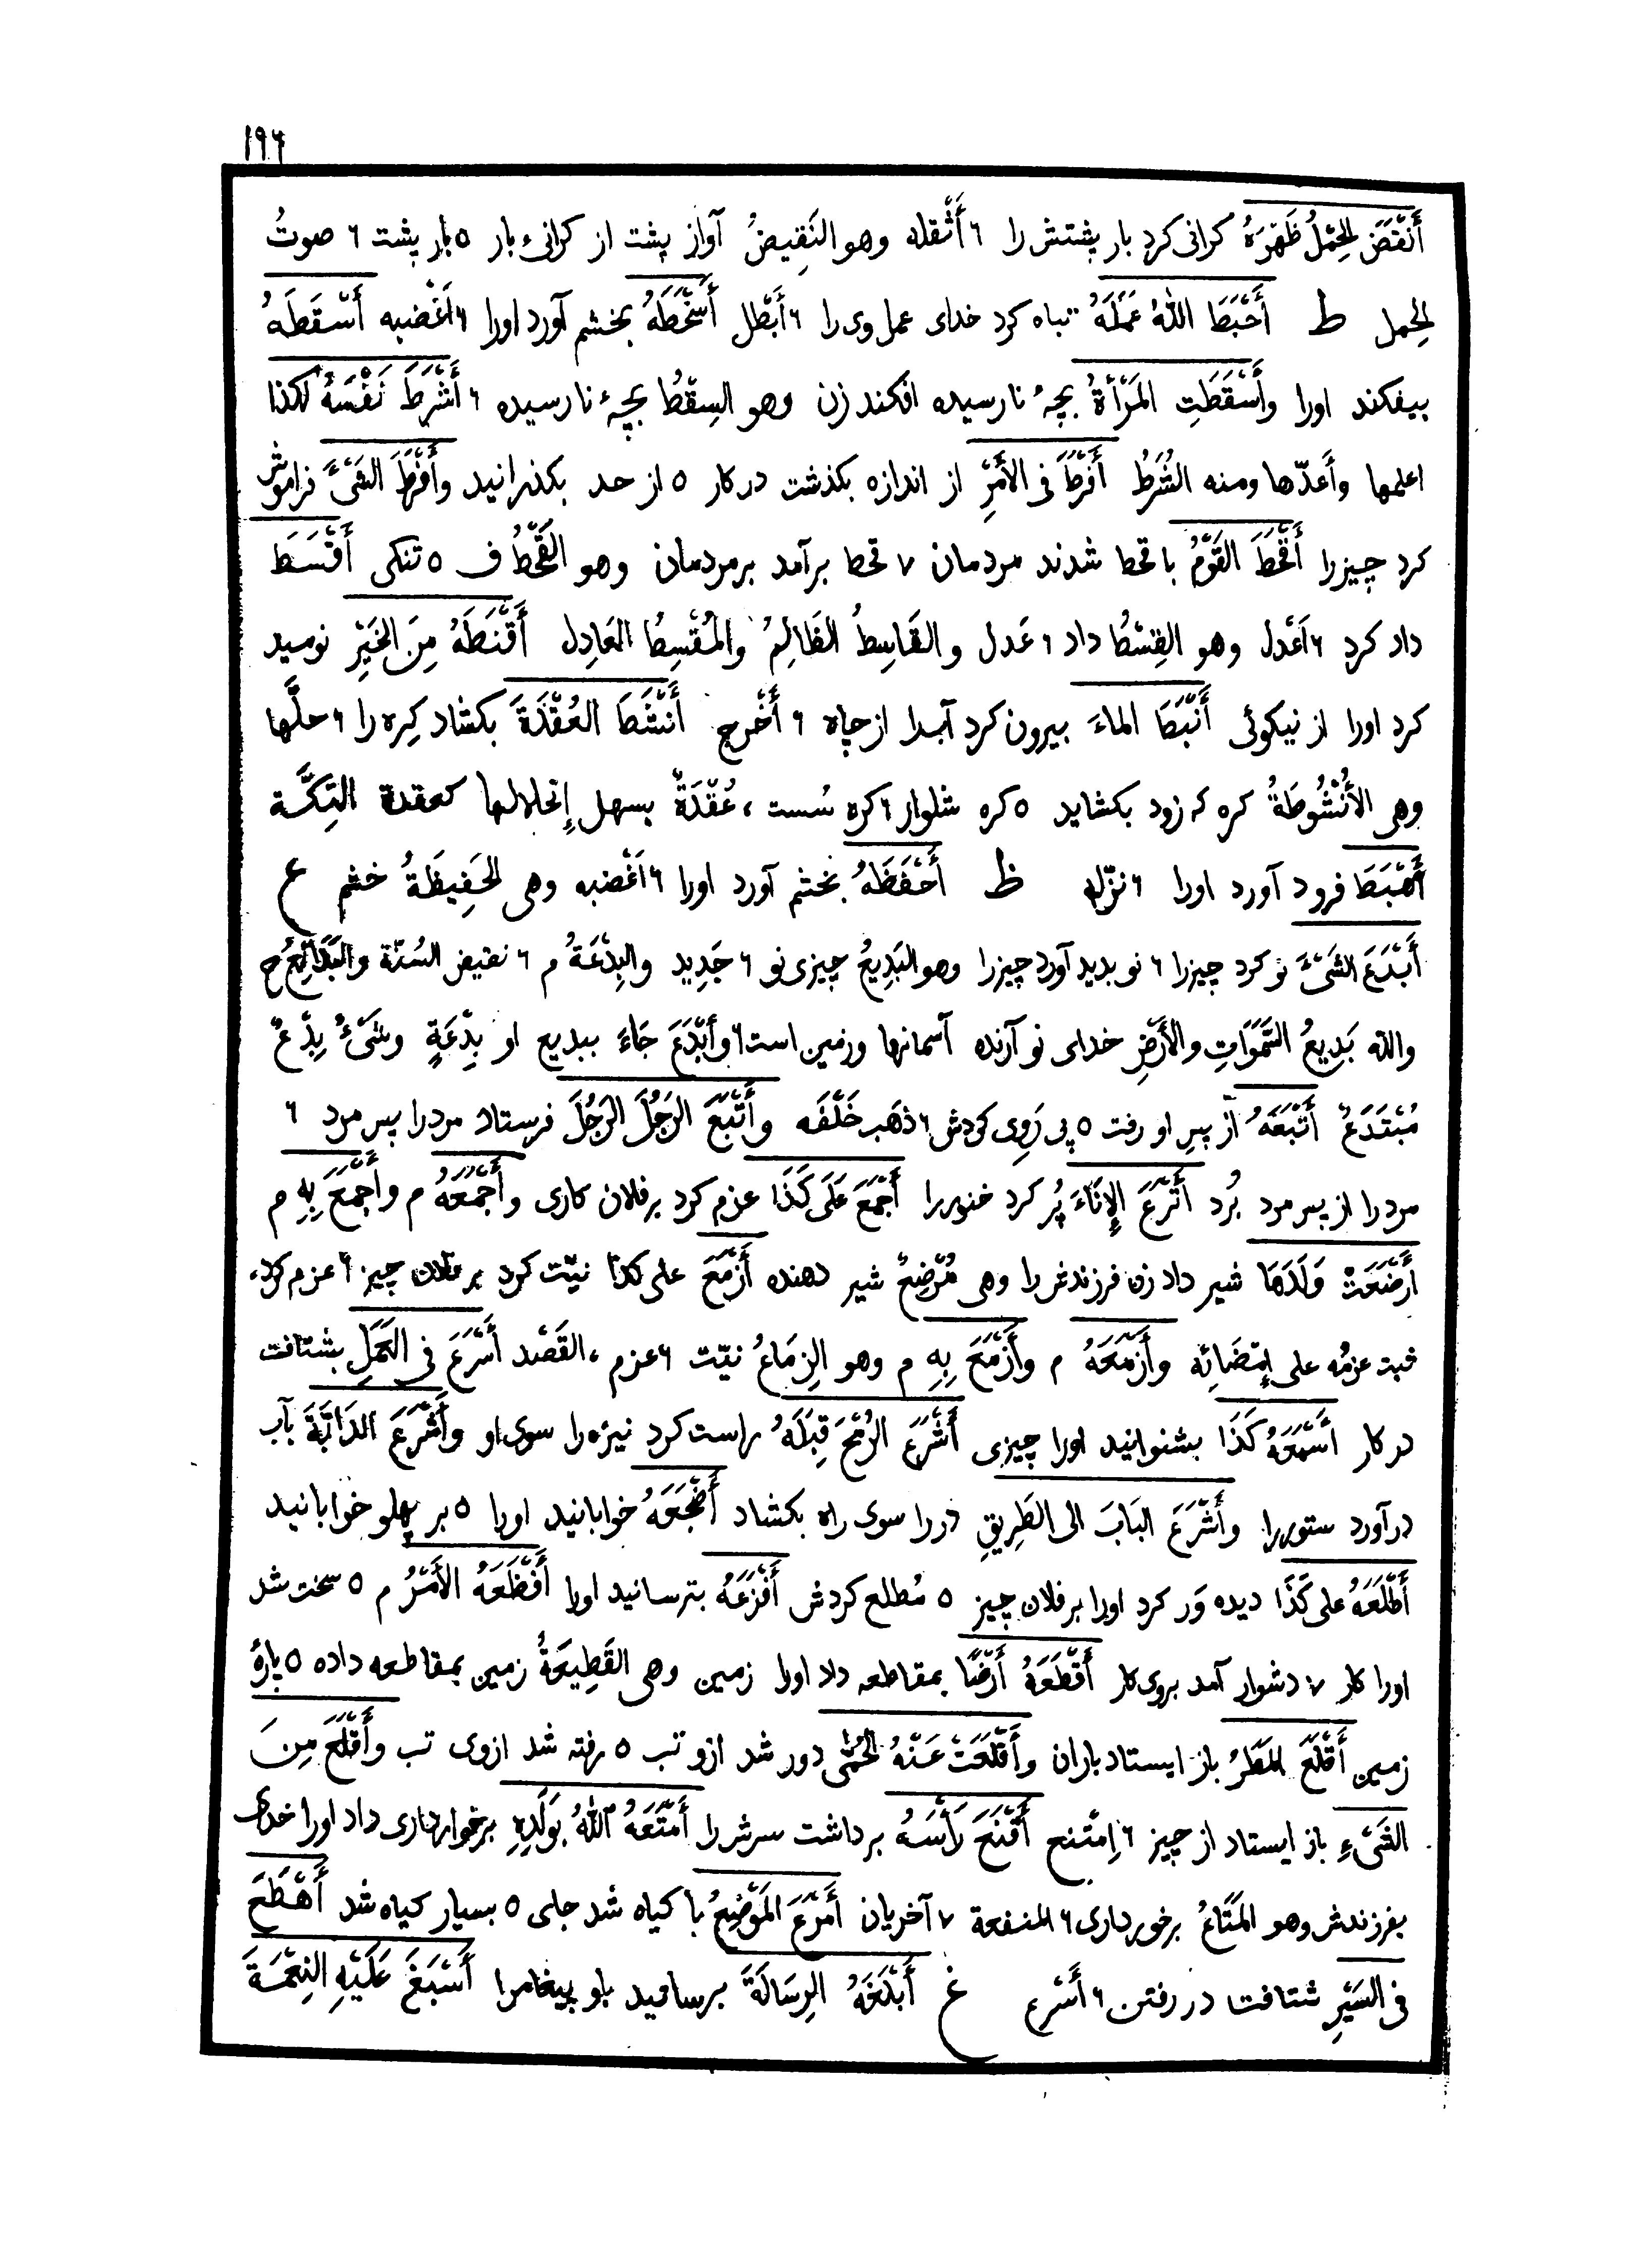 ١٩٦
أَنْقَضَ الحِمْلُ ظَهْرَهُ كرانى كرد بار پشتش را ٦ أَثْقله وهو النَقِيضُ آواز پشت از كرانىء بار ٥ بار پشت ٦ صوتُ
الحِمل ط أَحْبَطَ اللّٰهُ عَمَلَهُ تباه كرد خداى عمل وى را ٦ أَبْطل أَسْخَطَهُ بخشم آورد اورا ٦ أَغْضبه أَسْقَطَهُ
بيفكند اورا وأَسْقَطَتِ المَرْأَةُ بچهٔ نارسيده افكند زن وهو السِقْطُ بچهٔ نارسيده ٦ أَشْرَطَ نَفْسَهُ لكذا
اعلمها وأَعدّها ومنه الشُرَطُ أَفْرَطَ فى الأَمْرِ از اندازه بكذشت در كار ٥ از حد بكذرانيد وأَفْرَطَ الشَىْءَ فراموش
كرد چيزرا أَقْحَطَ القَوْمُ با قحط شدند مردمان ٧ قحط برآمد بر مردمان وهو القَحْطُ ف ٥ تنكى أَقْسَطَ
داد كرد ٦ أَعْدل وهو القِسْطُ داد ٦ عَدل والقَاسِطُ الظَالِمُ والمُقْسِطُ العَادِل أَقْنَطَهُ مِنَ الخَيْرِ نوميد
كرد اورا از نيكوئى أَنْبَطَ الماءَ بيرون كرد آبرا از چاه ٦ أَخْرج أَنْشَطَ العُقْدَةَ بكشاد كِره را ٦ حلَّها
وهى الأُنْشُوطَةُ كره كه زود بكشايد ٥ كره شلوار ٦ كره سُست ، عُقْدَةٌ يسهل إنحلالها كعقدة التِكَّة
أَهْبَطَ فرود آورد اورا ٦ نزّله ظ أَحْفَظَهُ بخشم آورد اورا ٦ أَغْضبه وهى الحَفِيظَةُ خشم ع
أَبْدَعَ الشَىْءَ نو كرد چيزرا ٦ نو بديد آورد چيزرا وهو البَدِيعُ چيزى نو ٦ جَدِيد والبِدْعَةُ م ٦ نقيض السُنّة والبَدَائِعُ ج
واللّٰه بَدِيعُ السَّمَوَاتِ والأَرْضِ خداى نو آرنده آسمانها وزمين است ٦ وأَبْدَعَ جَاءَ ببديع او بِدْعَةٍ وشَىْءٌ بِدْعٌ
مُبْتَدَعٌ أَتْبَعَهُ از پسِ او رفت ٥ پى رَوِى كردش ٦ ذهَب خَلْفَه وأَتْبَعَ الرَجُلَ الرَجُلَ فرستاد مردرا پس مرد ٦
مردرا از پس مرد بُرد أَتْرَعَ الإِنَاءَ پُر كرد خنوررا أَجْمَعَ عَلَى كَذَا عزم كرد بر فلان كارى وأَجْمَعَهُ م وأَجْمَعَ بِهِ م
أَرْضَعَتْ وَلَدَهَا شير داد زن فرزندش را وهى مُرْضِعٌ شير دهنده أَزْمَعَ على كذا نيّت كرد بر فلان چيز ٦ عزم كرد،
ثبت عزمُه على إمْضَائِه وأَزْمَعَهُ م وأَزْمَعَ بِهِ م وهو الزِمَاعُ نيّت ٦ عزم ، القَصْد أَسْرَعَ فى العَمَلِ بشتافت
در كار أَسْمَعَهُ كَذَا بشنوانيد اورا چيزى أَشْرَعَ الرُمْحَ قِبَلَهُ راست كرد نيزه را سوى او وأَشْرَعَ الدَابَّةَ بآب
درآورد ستوررا وأَشْرَعَ البَابَ الى الطَرِيقِ دررا سوى راه بكشاد أَضْجَعَهُ خوابانيد اورا ٥ بر پهلو خوابانيد
أَطْلَعَهُ على كَذَا ديده وَر كرد اورا بر فلان چيز ٥ مُطلع كردش أَفْزَعَهُ بترسانيد اورا أَفْظَعَهُ الأَمْرُ م ٥ سخت شد
اورا كار ٧ دشوار آمد بروى كار أَقْطَعَهُ أَرْضًا بمقاطعه داد اورا زمين وهى القَطِيعَةُ زمين بمقاطعه داده ٥ پارهٔ
زمين أَقْلَعَ المَطَرُ باز ايستاد باران وأَقْلَعَتْ عَنْهُ الحُمَّى دور شد ازو تب ٥ رفته شد ازوى تب وأَقْلَعَ مِنَ
الشَىْءِ باز ايستاد از چيز ٦ إمْتنع أَقْنَعَ رَأْسَهُ برداشت سرش را أَمْتَعَهُ اللّٰهُ بِوَلَدِهِ برخوردارى داد اورا خداى
بفرزندش وهو المَتَاعُ برخوردارى ٦ المنفعة ٧ آخريان أَمْرَعَ المَوْضِعُ با كياه شد جاى ٥ بسيار كياه شد أَهْطَعَ
فى السَيْرِ شتافت در رفتن ٦ أَسْرع غ أَبْلَغَهُ الرِسَالَةَ برسانيد باو پيغامرا أَسْبَغَ عَلَيْهِ النِعْمَةَ